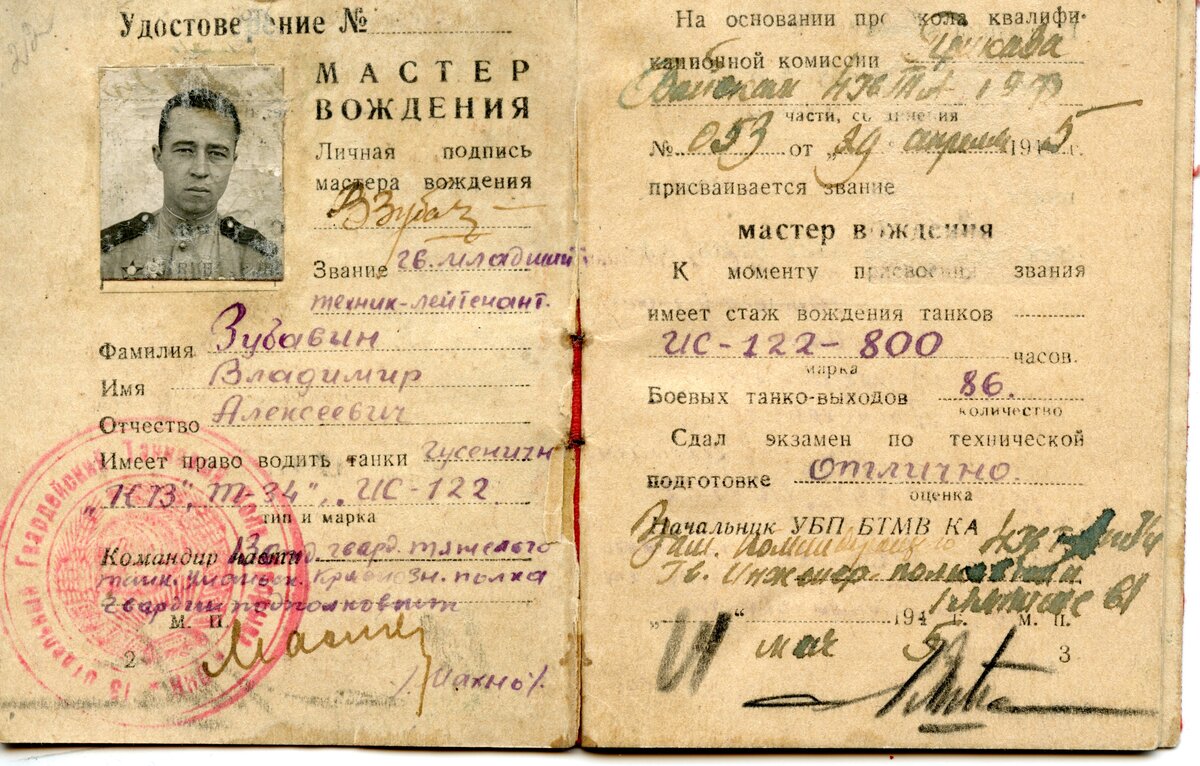 212
Удостоверение №
МАСТЕР
ВОЖДЕНИЯ
Личная подпись
мастера вождения
ВЗубав
Звание гв. младший
техник-лейтенант.
Фамилия Зубавин
Имя Владимир
Отчество Алексеевич
Имеет право водить танки гусеничн
"КВ", Т-34", ИС-122
тип и марка
Командир части гвард тяжелого
танк. Краснозн. полка
гвардии подполковник
М. П.
2
/Махно/.
13 Отдельный Гвардейский Танковый
На основании протокола квалифи-
кационной комиссии
Войскам 4 гв ТА 1 УФ
части, соединения
№ 053 от „29" апреля 1945 г.
присваивается звание
мастер вождения
К моменту присвоения звания
имеет стаж вождения танков
ИС-122-800 часов.
марка
Боевых танко-выходов 86.
количество
Сдал экзамен по технической
подготовке отлично.
оценка
Начальник УБП БТМВ КА
Зам. Командующего 4 гв
Гв. Инженер-полковник
„ " 194 г. М. П.
мая 5
3